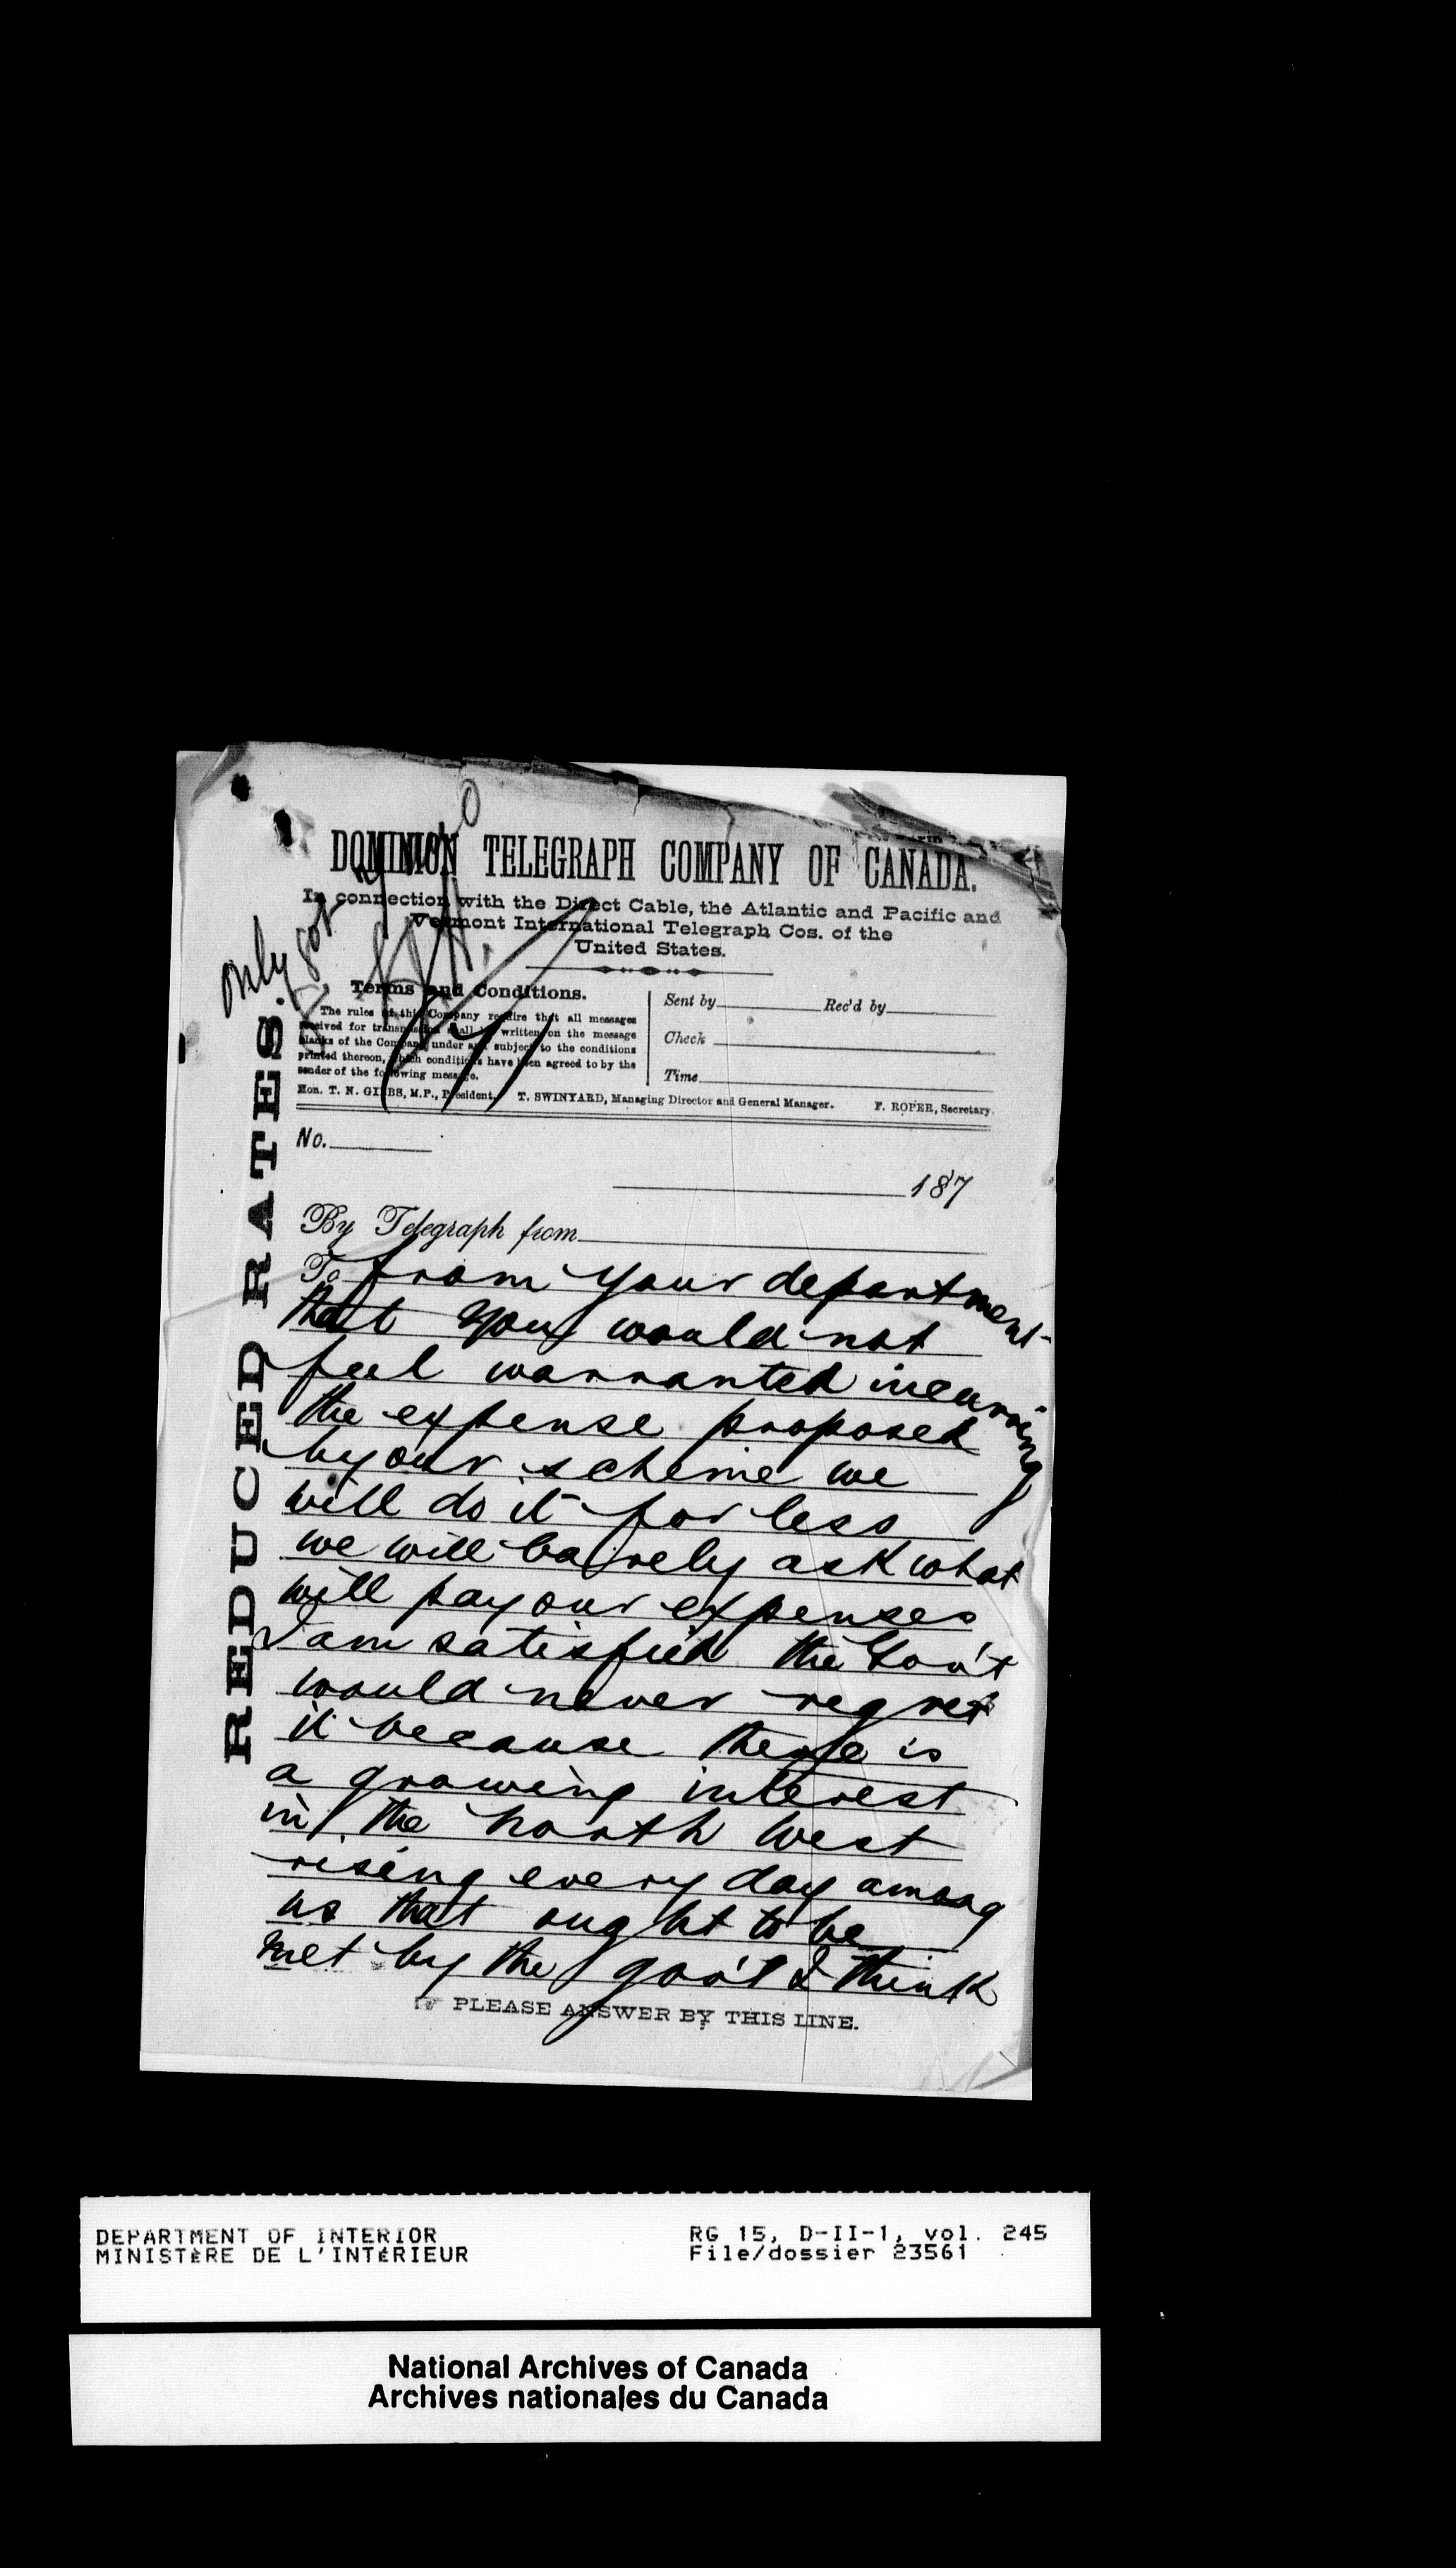 DOMINION TELEGRAPH COMPANY OF CANADA.
In connection with the Direct Cable, the Atlantic and Pacific and
Vermont International Telegraph Cos. of the
United States.
only got
Terms and Conditions.
The rules of this Company require that all messages
received for transmission shall be written on the message
blanks of the Company under and subject to the conditions
printed thereon, which conditions have been agreed to by the
sender of the following message.
Sent by Rec'd by
Check
Time
Hon. T. N. GIBBS, M.P., President. T. SWINYARD, Managing Director and General Manager. F. ROPER, Secretary.
REDUCED RATES.
No.
187
By Telegraph from
To from your department
that you would not
feel warranted incurring
the expense proposed
by our scheme we
will do it for less
we will barely ask what
will pay our expenses
I am satisfied the Gov't
would never regret
it because there is
a growing interest
in the North West
rising every day among
us that ought to be
met by the gov't I think
PLEASE ANSWER BY THIS LINE.
DEPARTMENT OF INTERIOR RG 15, D-II-1, vol. 245
MINISTÈRE DE L'INTÉRIEUR File/dossier 23561
National Archives of Canada
Archives nationales du Canada